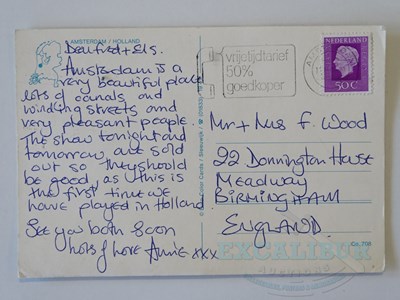 AMSTERDAM / HOLLAND
Dear Fred + Els.
Amsterdam is a
very beautiful place
lots of canals and
winding streets and
very pleasant people.
The show tonight and
tomorrow are sold
out so they should
be good, as this is
the first time we
have played in Holland
See you both soon
lots of love Annie xxx
vrije tijdtarief
50%
goedkoper
NEDERLAND
50C
Mr + Mrs F. Wood
22 Donnington House
Meadway
BIRMINGHAM
ENGLAND.
EXCALIBUR